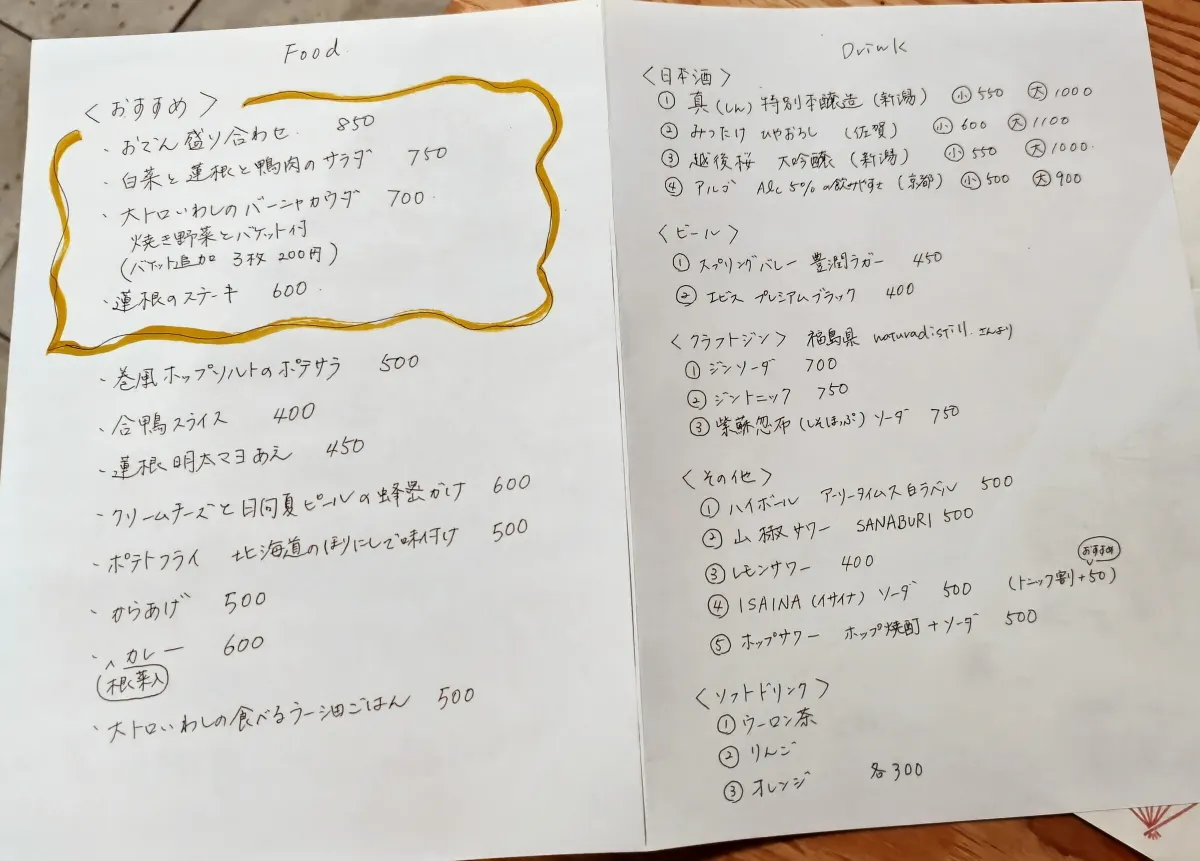 Food
〈おすすめ〉
・おでん盛り合わせ 850
・白菜と蓮根と鴨肉のサラダ 750
・大トロいわしのバーニャカウダ 700
焼き野菜とバケット付
(バケット追加 3枚 200円)
・蓮根のステーキ 600
・巻風ホップソルトのポテサラ 500
・合鴨スライス 400
・蓮根明太マヨあえ 450
・クリームチーズと日向夏ピールの蜂蜜がけ 600
・ポテトフライ 北海道のほりにしで味付け 500
・からあげ 500
・カレー 600
根菜入
・大トロいわしの食べるラー油ごはん 500
Drink
〈日本酒〉
① 真(しん)特別本醸造(新潟) 小 550 大 1000
② みつたけ ひやおろし (佐賀) 小 600 大 1100
③ 越後桜 大吟醸(新潟) 小 550 大 1000
④ アルゴ Alc 5% の飲みやすさ(京都) 小 500 大 900
〈ビール〉
① スプリングバレー 豊潤ラガー 450
② エビス プレミアムブラック 400
〈クラフトジン〉 福島県 naturadistill.さんより
① ジンソーダ 700
② ジントニック 750
③ 紫蘇忽布(しそほっぷ)ソーダ 750
〈その他〉
① ハイボール アーリータイムス白ラベル 500
② 山椒サワー SANABURI 500
③ レモンサワー 400
おすすめ
④ ISAINA(イサイナ)ソーダ 500 (トニック割+50)
⑤ ホップサワー ホップ焼酎+ソーダ 500
〈ソフトドリンク〉
① ウーロン茶
② りんご
③ オレンジ 各300